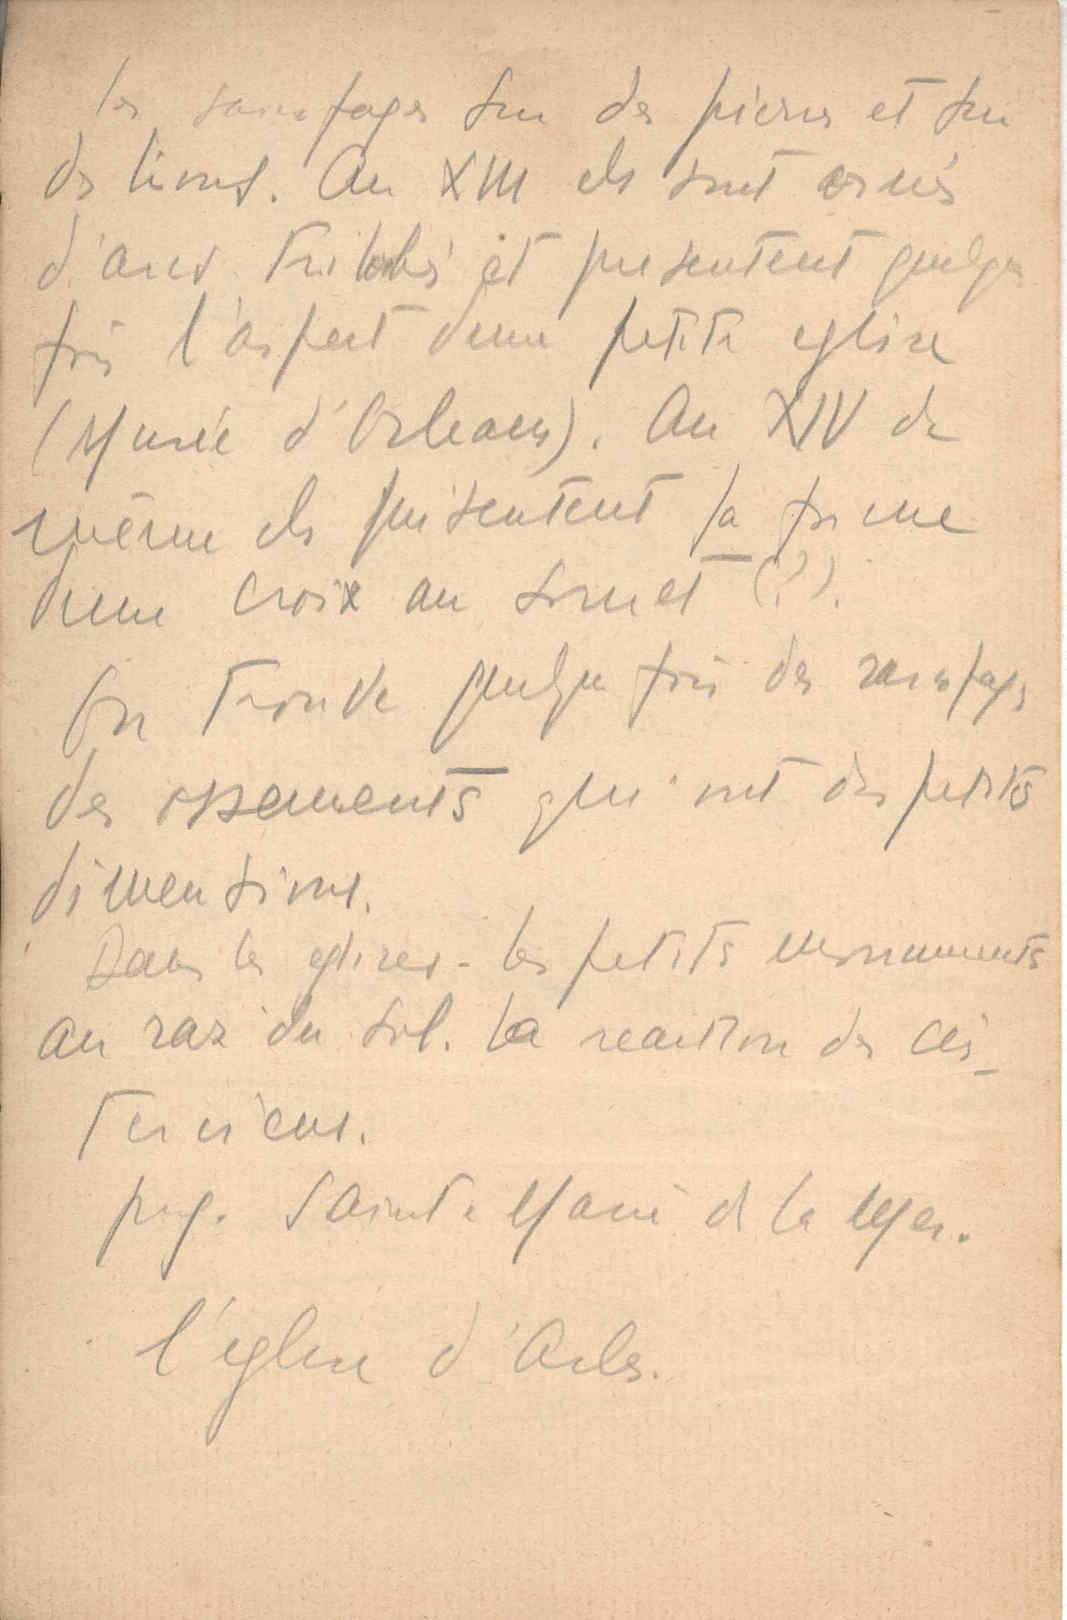 les sarcofages sur des pierres et sur
des lions. Au XIII ils sont ornés
d'arcs trilobés et presentent quelque
fois l'aspect d'une petite eglise
(Musée d'Orleans). Au XIV de
même ils présentent la forme
d'une croix au somet (?).
On trouve quelque fois des sarcofages
des ossements qui ont des petites
dimensions.
Dans les eglises - les petits monuments
au raz du sol. La reaction des Cis-
terciens.
proj. Sainte Marie de la Mer.
l'eglise d'Arles.